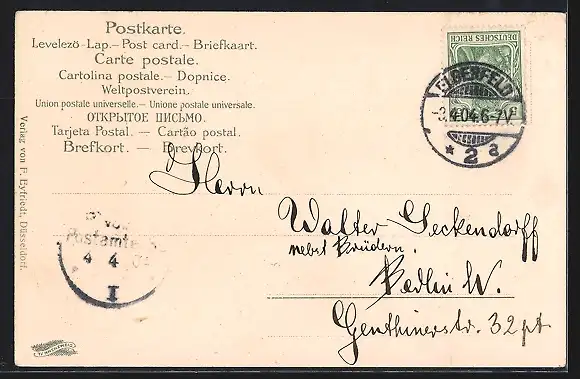 Postkarte.
Levelezö-Lap.– Post card.– Briefkaart.
Carte postale.
Cartolina postale.– Dopnice.
Weltpostverein.
Union postale universelle.– Unione postale universale.
ОТКРЫТОЕ ПИСЬМО.
Tarjeta Postal. — Cartão postal.
Brefkort. — Brevkort.
DEUTSCHES REICH
ELBERFELD
4.04.6-7V.
* 2 a
Herrn
Walter Geckendorff
nebst Brüdern.
Berlin W.
Genthinerstr. 32 pt.
Postamte
4 4
I
Verlag von F. Eyfriedt, Düsseldorf.